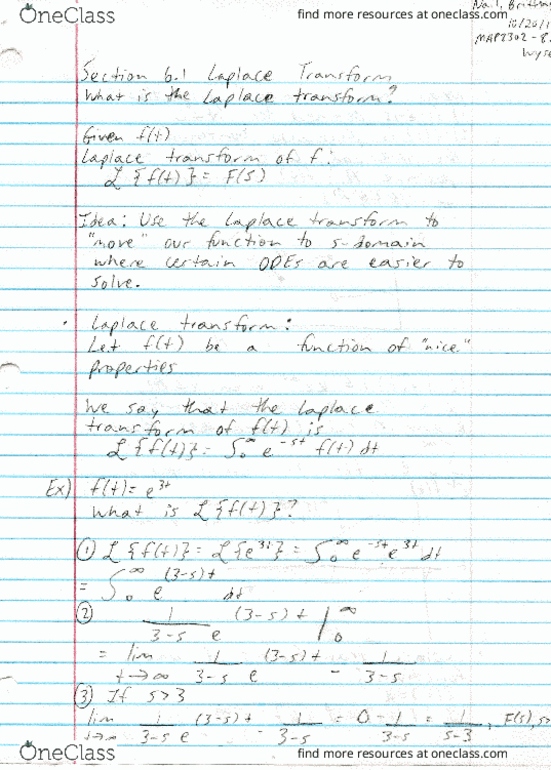 OneClass find more resources at oneclass.com
No. 1,
10/20/1
MAP2302-8
Section 6.1 Laplace Transform
What is the Laplace transform?
Given f(t)
Laplace transform of f:
ℒ{f(t)} = F(s)
Idea: Use the Laplace transform to
"move" our function to s-domain
where certain ODEs are easier to
solve.
• Laplace transform:
Let f(t) be a function of "nice"
properties
We say that the Laplace
transform of f(t) is
ℒ{f(t)} = ∫₀^∞ e^(-st) f(t) dt
Ex) f(t) = e^(3t)
What is ℒ{f(t)}?
① ℒ{f(t)} = ℒ{e^(3t)} = ∫₀^∞ e^(-st) e^(3t) dt
= ∫₀^∞ e^((3-s)t) dt
② 1/(3-s) e^((3-s)t) |₀^∞
= lim t→∞ 1/(3-s) e^((3-s)t) - 1/(3-s)
③ If s>3
lim t→∞ 1/(3-s) e^((3-s)t) - 1/(3-s) = 0 - 1/(3-s) = 1/(s-3), F(s), s>
OneClass find more resources at oneclass.com